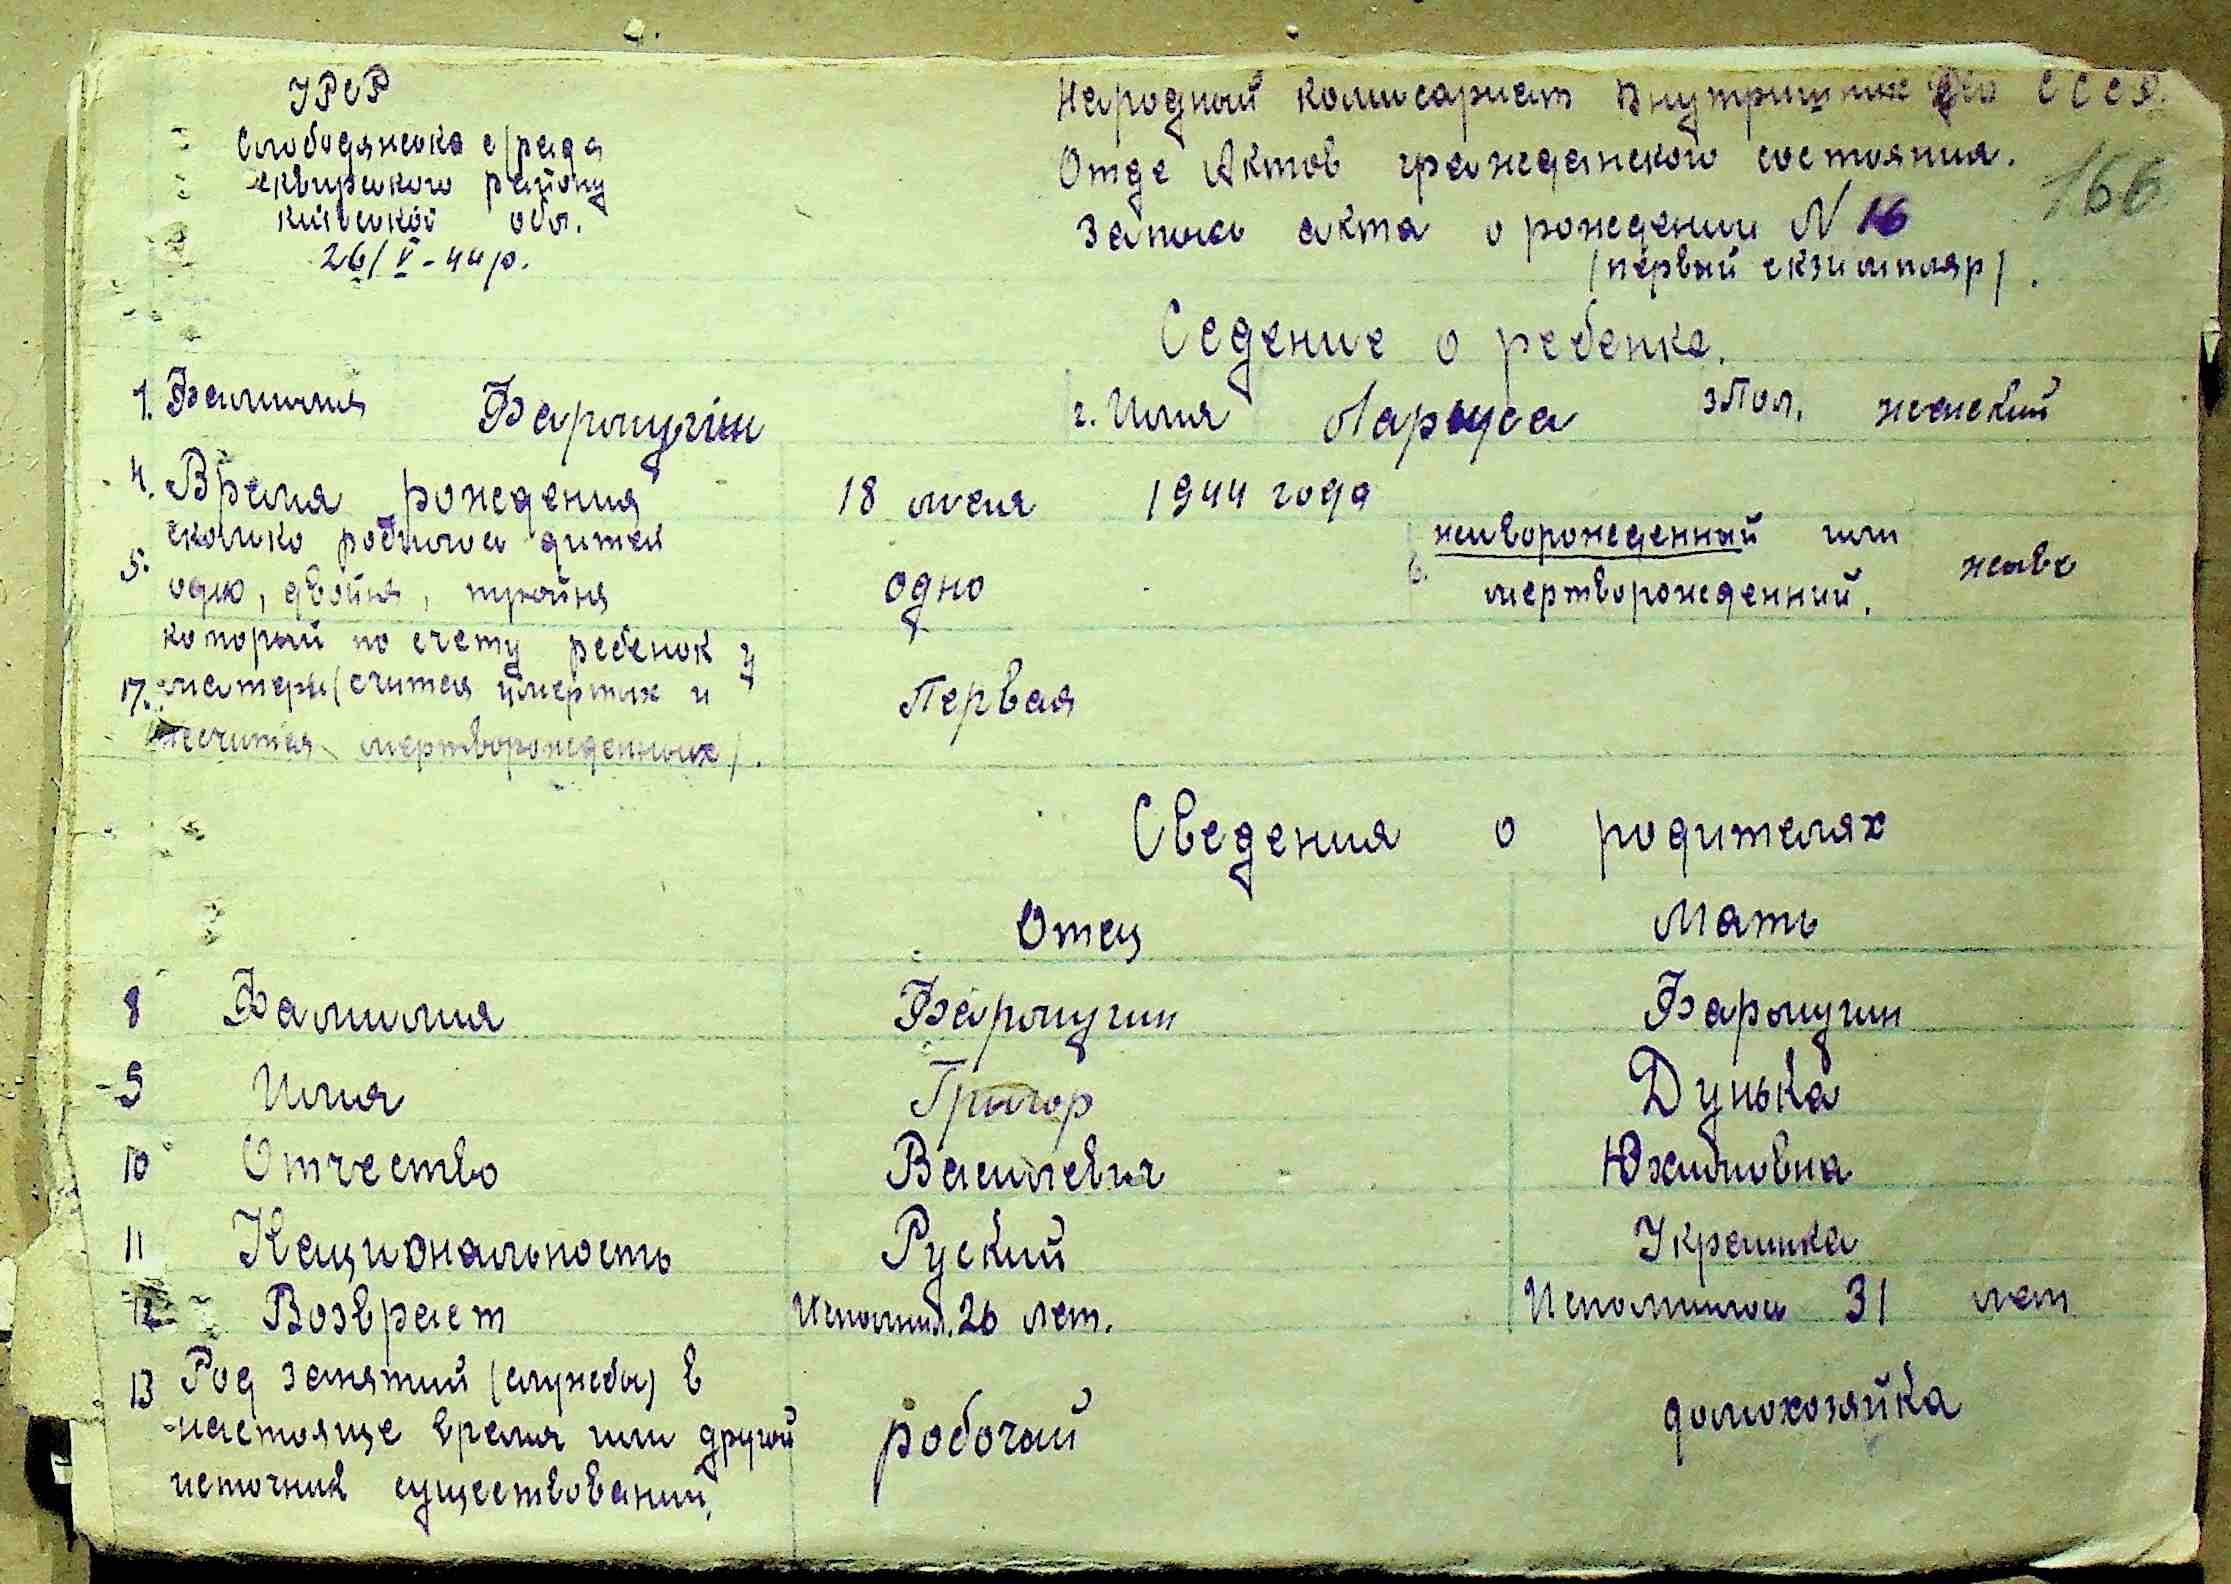 УРСР
Слободянська с/рада
сквирського району
київської обл.
26/V-44р.
Народный комисариат Внутришних Дел СССР.
Отде Актов гражданского состояния.
166
Запись акта о рождении N 16
/первый екзимпляр/.
Седение о ребенка.
1. Фамилия Фармугин 2. Имя Лариса 3 Пол. женский
4. Время рождения 18 мая 1944 года
5. сколько родилося дитей
одно, двойня, тройня одно
6. живорожденный или
мертворожденний. живе
который по счету ребенок у
17. матеры (считая умертых и Первая
несчитая мертворожденных).
Сведения о родителях
Отец Мать
8 Фамилия Фармугин Фармугин
9 Имя Григор Дунька
10 Отчество Василевич Юхимовна
11 Национальность Руский Украинка
12 Возвраст Исполнил. 26 лет. Исполнилось 31 лет
13 Род занятий (службы) в
настояще время или другой робочий домохозяйка
источник существований.